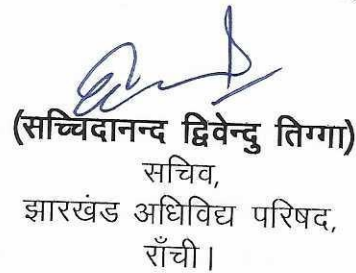 (सच्चिदानन्द द्विवेन्दु तिग्गा)
सचिव,
झारखंड अधिविद्य परिषद,
राँची।